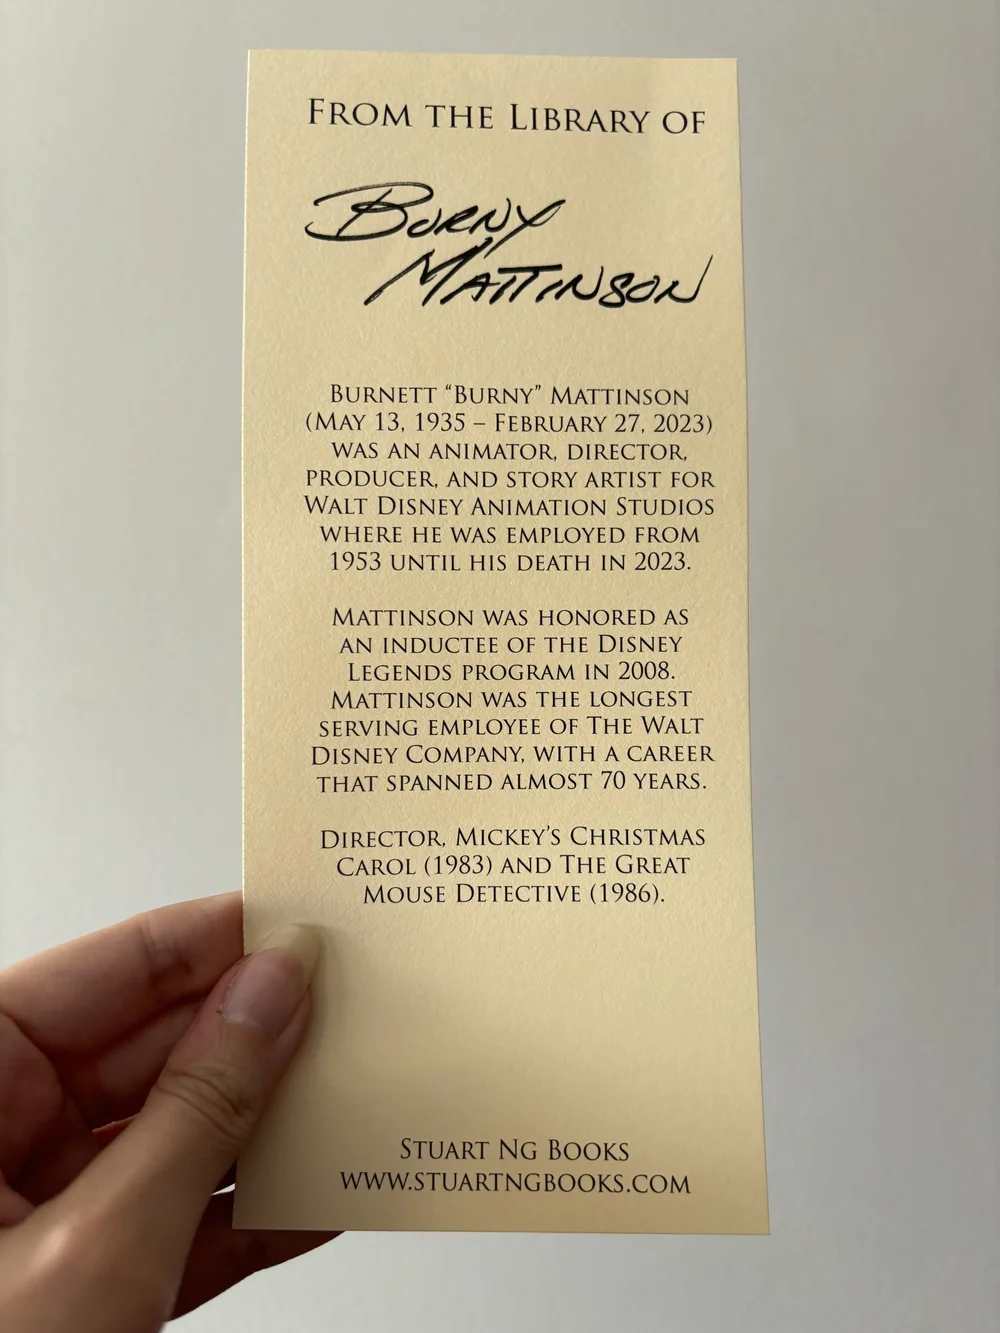 From the Library of
Burny
Mattinson
Burnett “Burny” Mattinson
(May 13, 1935 – February 27, 2023)
was an animator, director,
producer, and story artist for
Walt Disney Animation Studios
where he was employed from
1953 until his death in 2023.
Mattinson was honored as
an inductee of the Disney
Legends program in 2008.
Mattinson was the longest
serving employee of The Walt
Disney Company, with a career
that spanned almost 70 years.
Director, Mickey’s Christmas
Carol (1983) and The Great
Mouse Detective (1986).
Stuart Ng Books
www.stuartngbooks.com